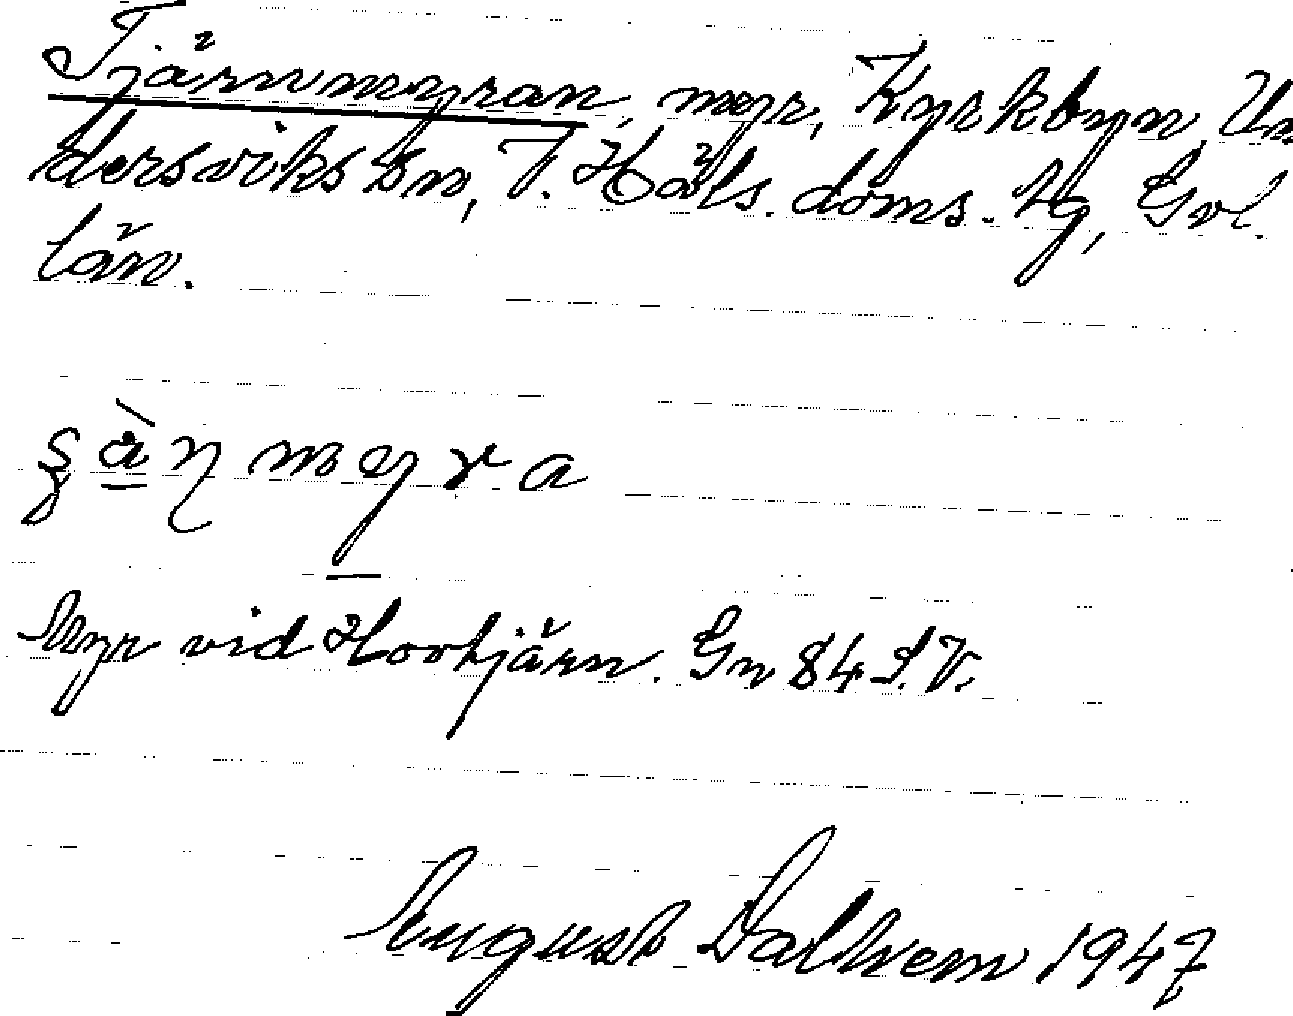 Tjärnmyran, myr, Kyrkbyn, Un
dersviks sn, V. Häls. doms. tg, Gvl.
län.
Myr vid Hovtjärn. Gn 84 S.V.
August Dalhem 1947